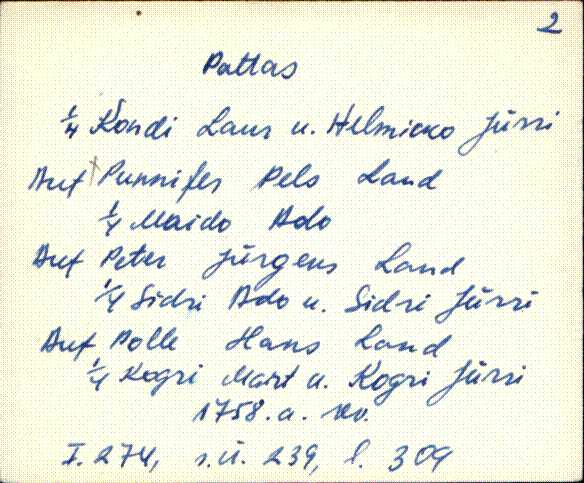 2
Pattas
1/4 Kondi Laur u. Helmicko Jürri
Auf Punnifer Pels Land
1/4 Maido Ado
Auf Peter Jürgens Land
1/4 Sidri Ado u. Sidri Jürri
Auf Polle Hans Land
1/4 Kogri Mart u. Kogri Jürri
1758. a. rev.
I. 274, s.ü. 239, l. 309